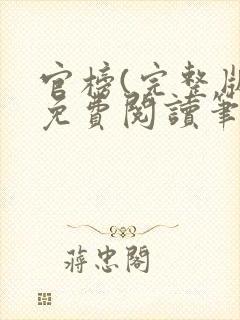 官榜(完整版
免費閱讀筆
蔣忠閣